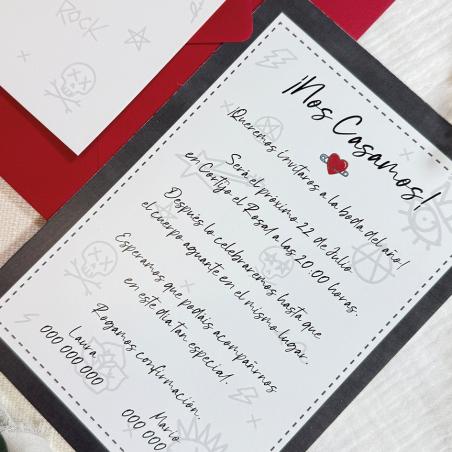 ROCK
¡Nos Casamos!
¡Queremos invitaros a la boda del año!
Será el próximo 22 de Julio
en Cortijo el Rosal a las 20:00 horas.
Después lo celebraremos hasta que
el cuerpo aguante en el mismo lugar.
Esperamos que podáis acompañrnos
en este día tan especial.
Rogamos confirmación.
Laura
000 000 000
Mario
000 000